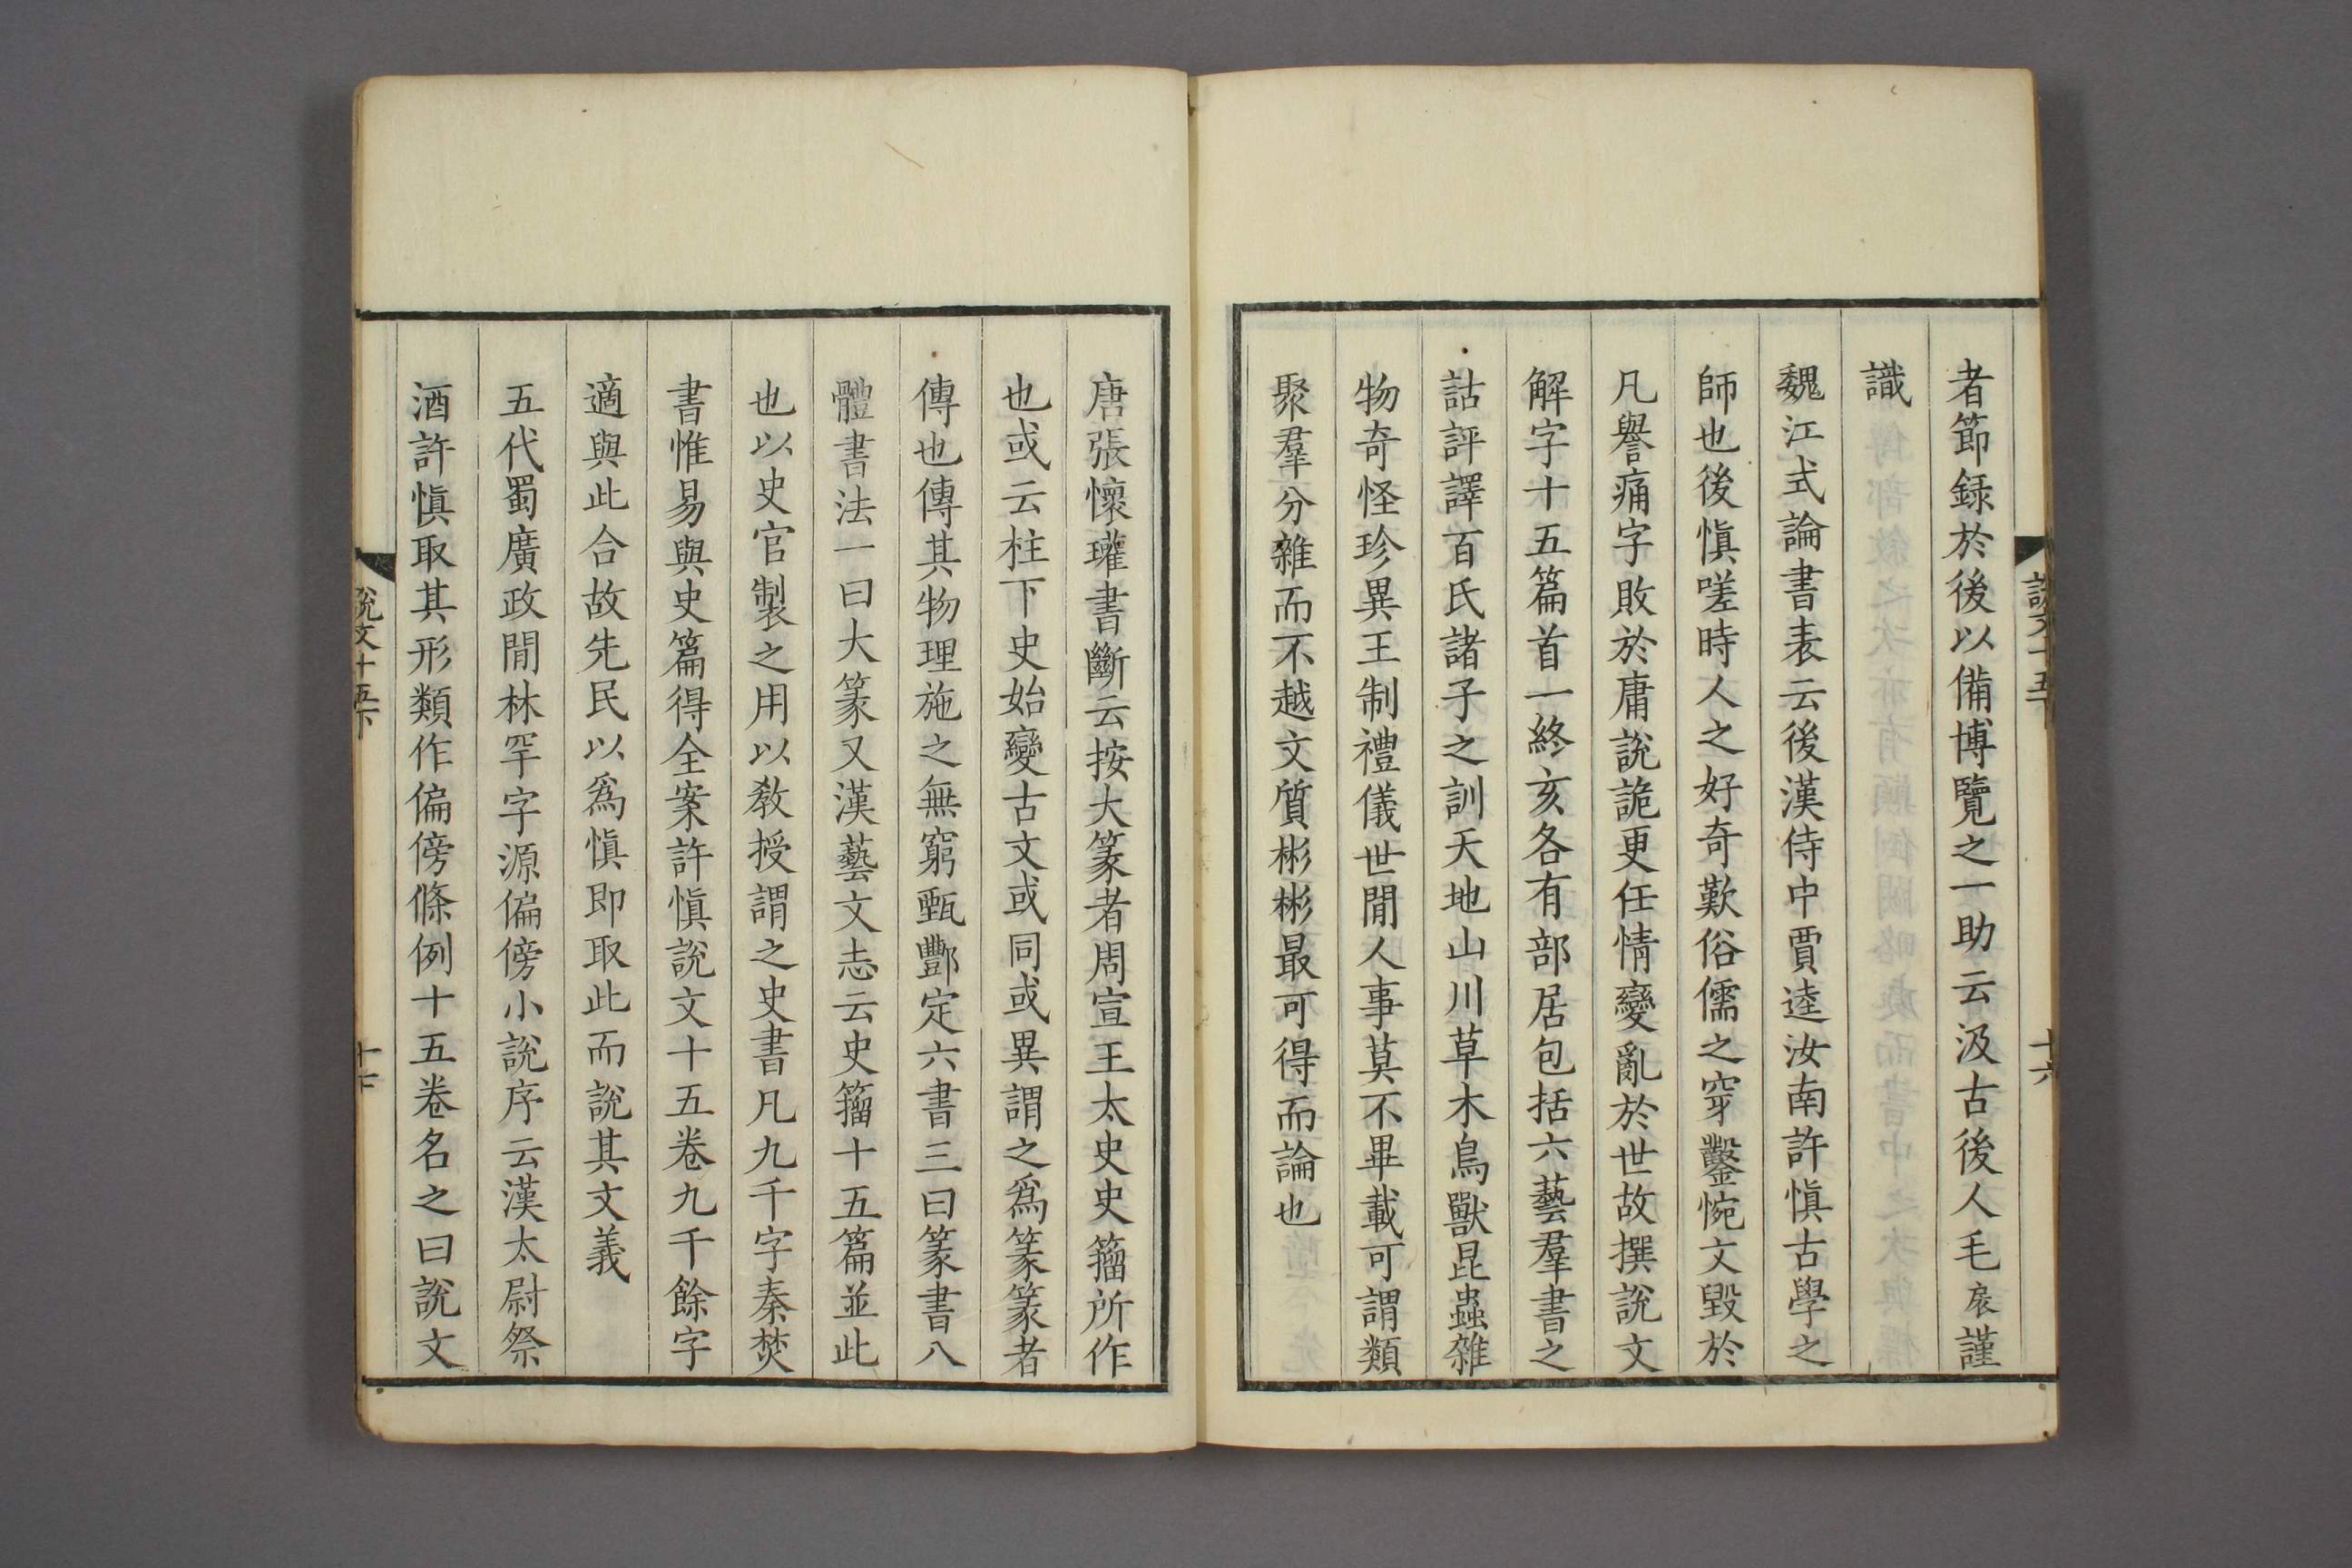 說文十五下
十六
者節録於後以備博覽之一助云汲古後人毛扆謹
識
魏江式論書表云後漢侍中賈逵汝南許慎古學之
師也後慎嗟時人之好奇歎俗儒之穿鑿惋文毀於
凡譽痛字敗於庸說詭更任情變亂於世故撰說文
解字十五篇首一終亥各有部居包括六藝羣書之
詁評譯百氏諸子之訓天地山川草木鳥獸昆蟲雜
物奇怪珍異王制禮儀世閒人事莫不畢載可謂類
聚羣分雜而不越文質彬彬最可得而論也
唐張懷瓘書斷云按大篆者周宣王太史史籒所作
也或云柱下史始變古文或同或異謂之爲篆篆者
傳也傳其物理施之無窮甄酆定六書三曰篆書八
體書法一曰大篆又漢藝文志云史籒十五篇並此
也以史官製之用以教授謂之史書凡九千字秦焚
書惟易與史篇得全案許慎說文十五卷九千餘字
適與此合故先民以爲慎即取此而說其文義
五代蜀廣政閒林罕字源偏傍小說序云漢太尉祭
酒許慎取其形類作偏傍條例十五卷名之曰說文
說文十五下